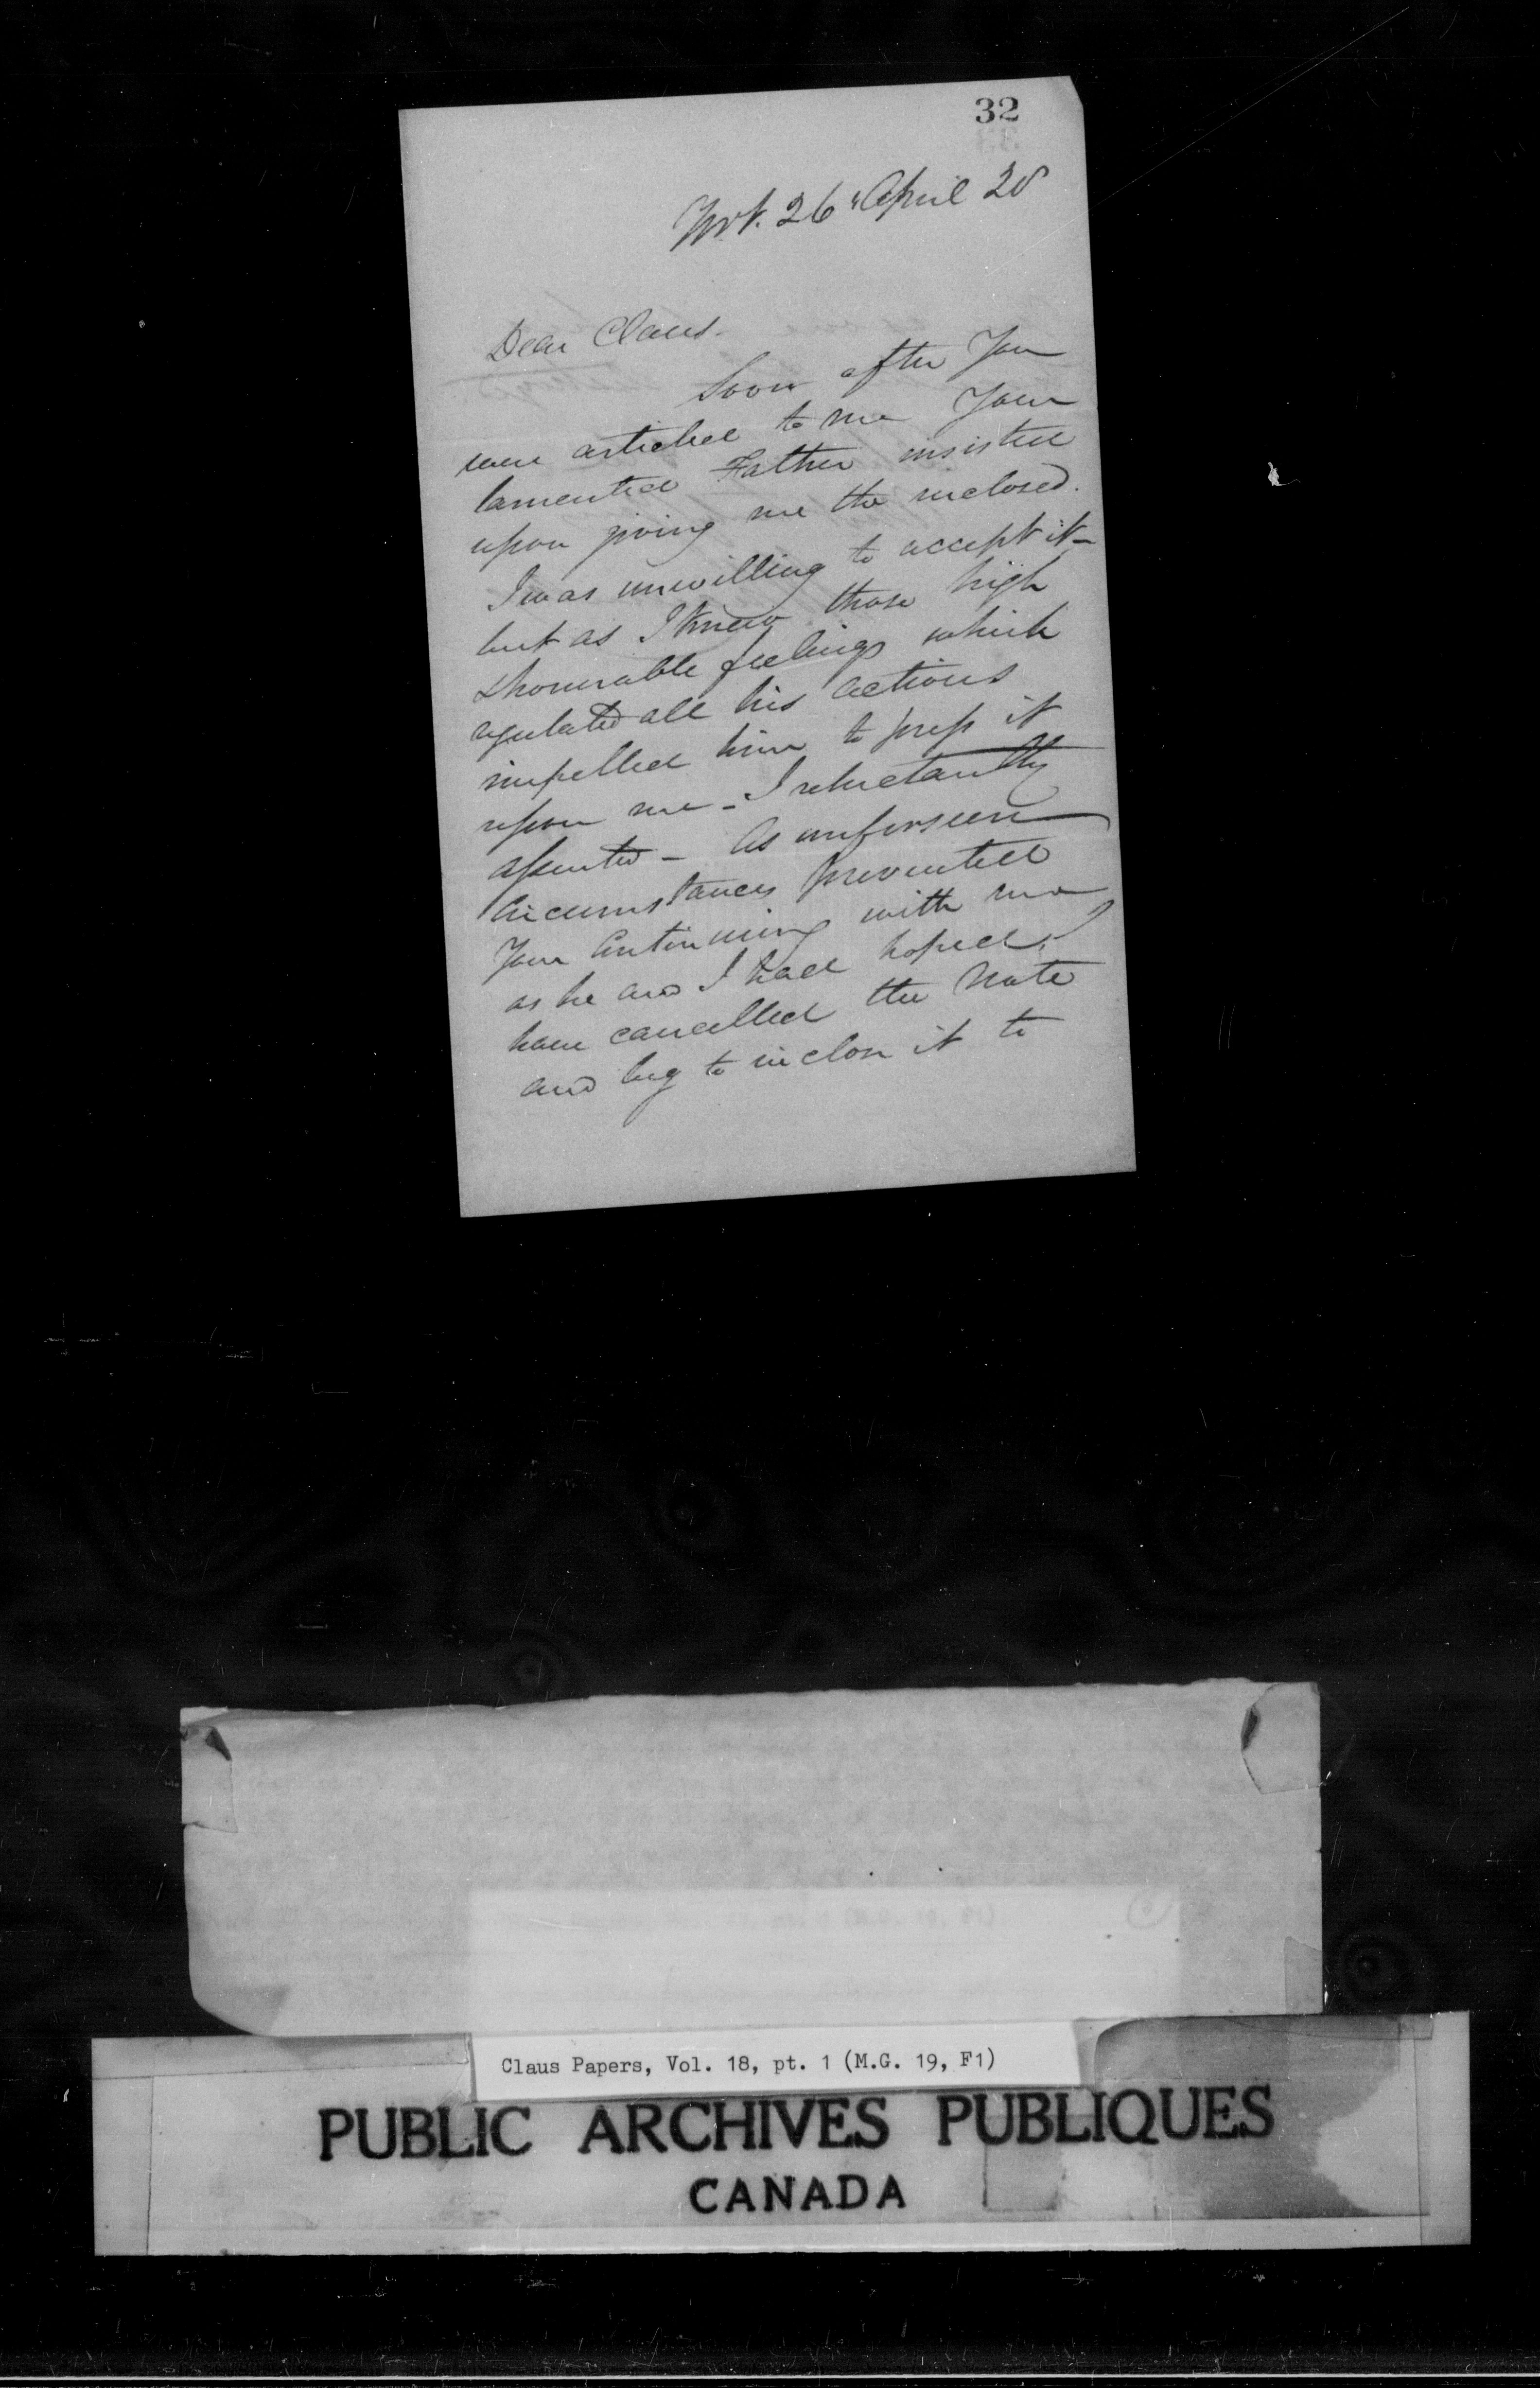 32
York. 26 April 28
Dear Claus.
Soon after You
were articled to me Your
lamented Father insisted
upon giving me the inclosed.
I was unwilling to accept it –
but as I knew those high
& honorable feelings which
regulated all his actions
impelled him to press it
upon me – I reluctantly
assented – As unforseen
Circumstances prevented
Your Continuing with me
as he and I had hoped, I
have cancelled the Note
and beg to inclose it to
Claus Papers, Vol. 18, pt. 1 (M.G. 19, F1)
PUBLIC ARCHIVES PUBLIQUES
CANADA